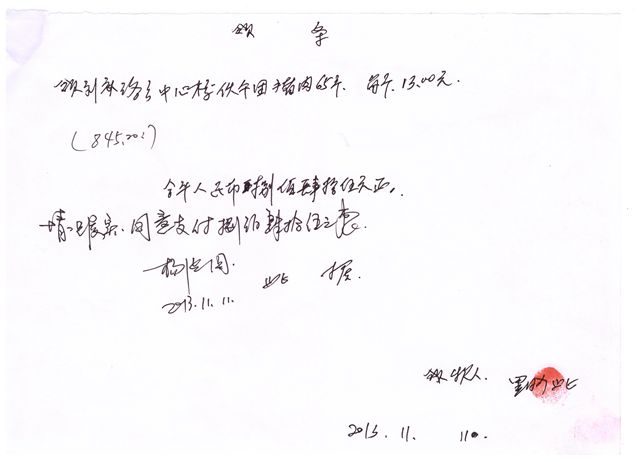 领 条
领到 中心校伙午团猪肉65斤. 每斤.13.00元.
(845.00)
合计人民币捌佰肆拾伍元正.
情况属实.同意支付捌佰肆拾伍元整.
2013.11.11.
此 据
领款人.
2013. 11. 110.